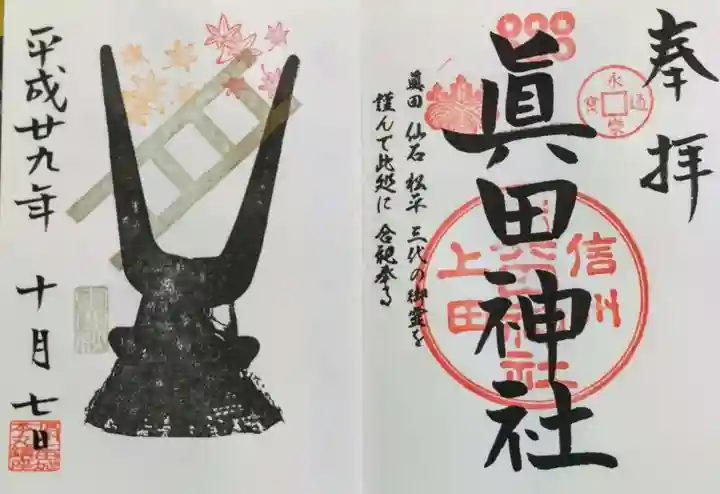 奉拝
眞田神社
眞田 仙石 松平 三代の御霊を
謹んで此処に合祀奉る
永
通
寳
信州
上田
平成廿九年 十月 七日